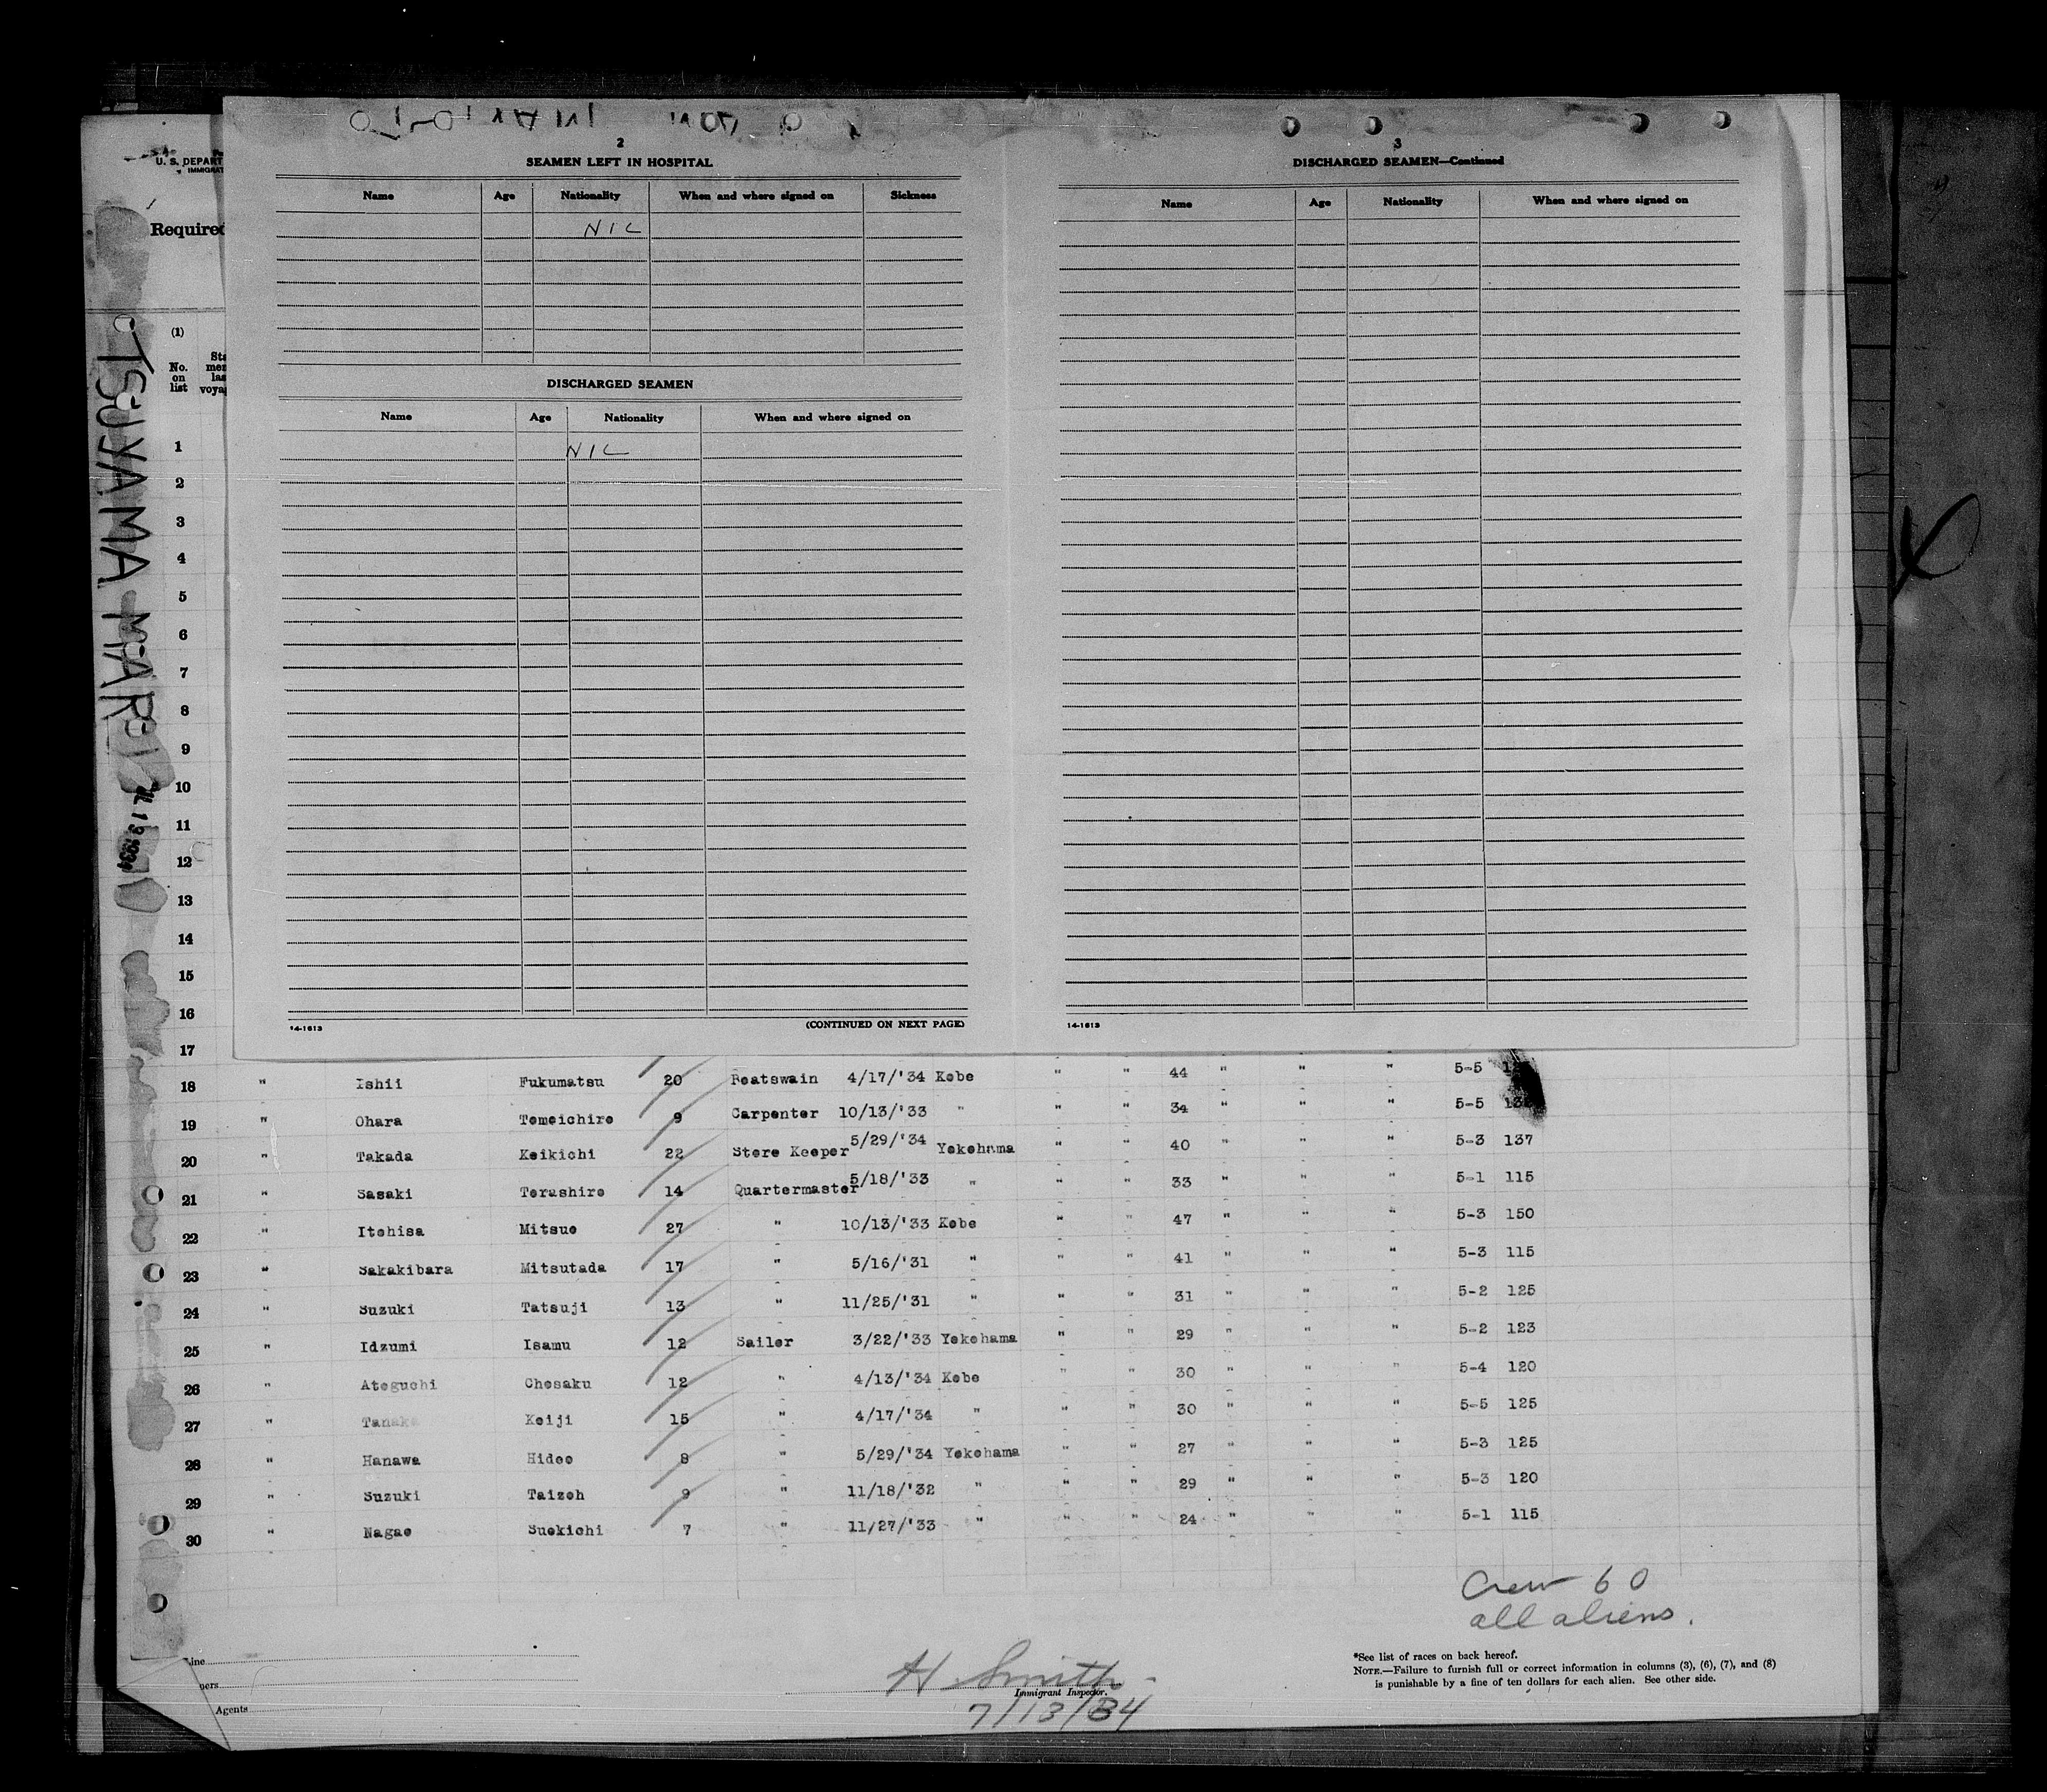 2
SEAMEN LEFT IN HOSPITAL
Name Age Nationality When and where signed on Sickness
NIL
DISCHARGED SEAMEN
Name Age Nationality When and where signed on
NIL
14-1613 (CONTINUED ON NEXT PAGE)
3
DISCHARGED SEAMEN—Continued
Name Age Nationality When and where signed on
14-1613
U. S. DEPART
IMMIGRAT
Required
(1)
No. on list
Sta
mer
las
voyag
TSUYAMA MAR
1
2
3
4
5
6
7
8
9
10
11
12
13
14
15
16
17
18 " Ishii Fukumatsu 20 Boatswain 4/17/'34 Kobe " " 44 " " " 5-5
19 " Ohara Tomeichiro 9 Carpenter 10/13/'33 " " " 34 " " " 5-5
20 " Takada Keikichi 22 Store Keeper 5/29/'34 Yokohama " " 40 " " " 5-3 137
21 " Sasaki Torashiro 14 Quartermaster 5/18/'33 " " " 33 " " " 5-1 115
22 " Itohisa Mitsuo 27 " 10/13/'33 Kobe " " 47 " " " 5-3 150
23 " Sakakibara Mitsutada 17 " 5/16/'31 " " " 41 " " " 5-3 115
24 " Suzuki Tatsuji 13 " 11/25/'31 " " " 31 " " " 5-2 125
25 " Idzumi Isamu 12 Sailor 3/22/'33 Yokohama " " 29 " " " 5-2 123
26 " Atoguchi Chosaku 12 " 4/13/'34 Kobe " " 30 " " " 5-4 120
27 " Tanaka Keiji 15 " 4/17/'34 " " " 30 " " " 5-5 125
28 " Hanawa Hideo 8 " 5/29/'34 Yokohama " " 27 " " " 5-3 125
29 " Suzuki Taizoh 9 " 11/18/'32 " " " 29 " " " 5-3 120
30 " Nagao Suekichi 7 " 11/27/'33 " " " 24 " " " 5-1 115
Crew 60
all aliens.
Line
ners
Agents
H Smith
Immigrant Inspector.
7/13/34
*See list of races on back hereof.
NOTE.—Failure to furnish full or correct information in columns (3), (6), (7), and (8)
is punishable by a fine of ten dollars for each alien. See other side.